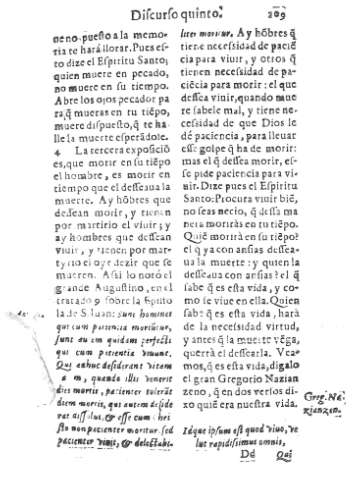 Discurso quinto. 209
neno, puesto a la memo-
ria te hará llorar. Pues es-
to dize el Espiritu Santo,
quien muere en pecado,
no muere en su tiempo.
Abre los ojos pecador pa
ra q̃ mueras en tu tiẽpo,
muere dispuesto, q̃ te ha-
lle la muerte esperãdole.
4 La tercera exposiciõ
es, que morir en su tiẽpo
el hombre, es morir en
tiempo que el desseaua la
muerte. Ay hõbres que
dessean morir, y tienen
por martirio el viuir; y
ay hombres que dessean
viuir, y tienen por mar-
tyrio el oyr dezir que se
mueren. Assi lo notó el
grande Augustino, en el
tratado 9 sobre la Epistо
la de S. Iuan: sunt homines
qui cum patientia moriuntur,
sunt autem quidam perfecti
qui cum patientia viuunt.
Qui adhuc desiderat vitam
quando illi venerit
dies mortis, patienter tolerat
diem mortis, qui autem deside
rat dissolui, & esse cum Chri
sto non patienter moritur sed
patienter viuit, & delectabi-
liter moritur. Ay hõbres q̃
tiene necessidad de paciẽ
cia para viuir, y otros q̃
tienen necessidad de pa-
ciẽcia para morir: el que
dessea viuir, quando mue
re sabele mal, y tiene ne-
cessidad de que Dios le
dé paciencia, para lleuar
esse golpe q̃ ha de morir:
mas el q̃ dessea morir, es-
se pide paciencia para vi-
uir. Dize pues el Espiritu
Santo: Procura viuir biẽ,
no seas necio, q̃ dessa ma
nera moriràs en tu tiẽpo.
Quiẽ morirà en su tiẽpo?
el q̃ ya con ansias dessea
la muerte: y quien la
desseaua con ansias? el q̃
sabe q̃ es esta vida, y co-
mo se viue en ella. Quien
sabe q̃ es esta vida, hará
de la necessidad virtud,
y antes q̃ la muerte vẽga,
querrà el dessearla. Vea-
mos, q̃ es esta vida, digalo
el gran Gregorio Nazian
zeno, q̃ en dos versos di-
xo quiẽ era nuestra vida.
Greg. Na-
zianzen.
Idque ipsum est quod viuo, ve
lut rapidissimus omnis,
Dd Qui